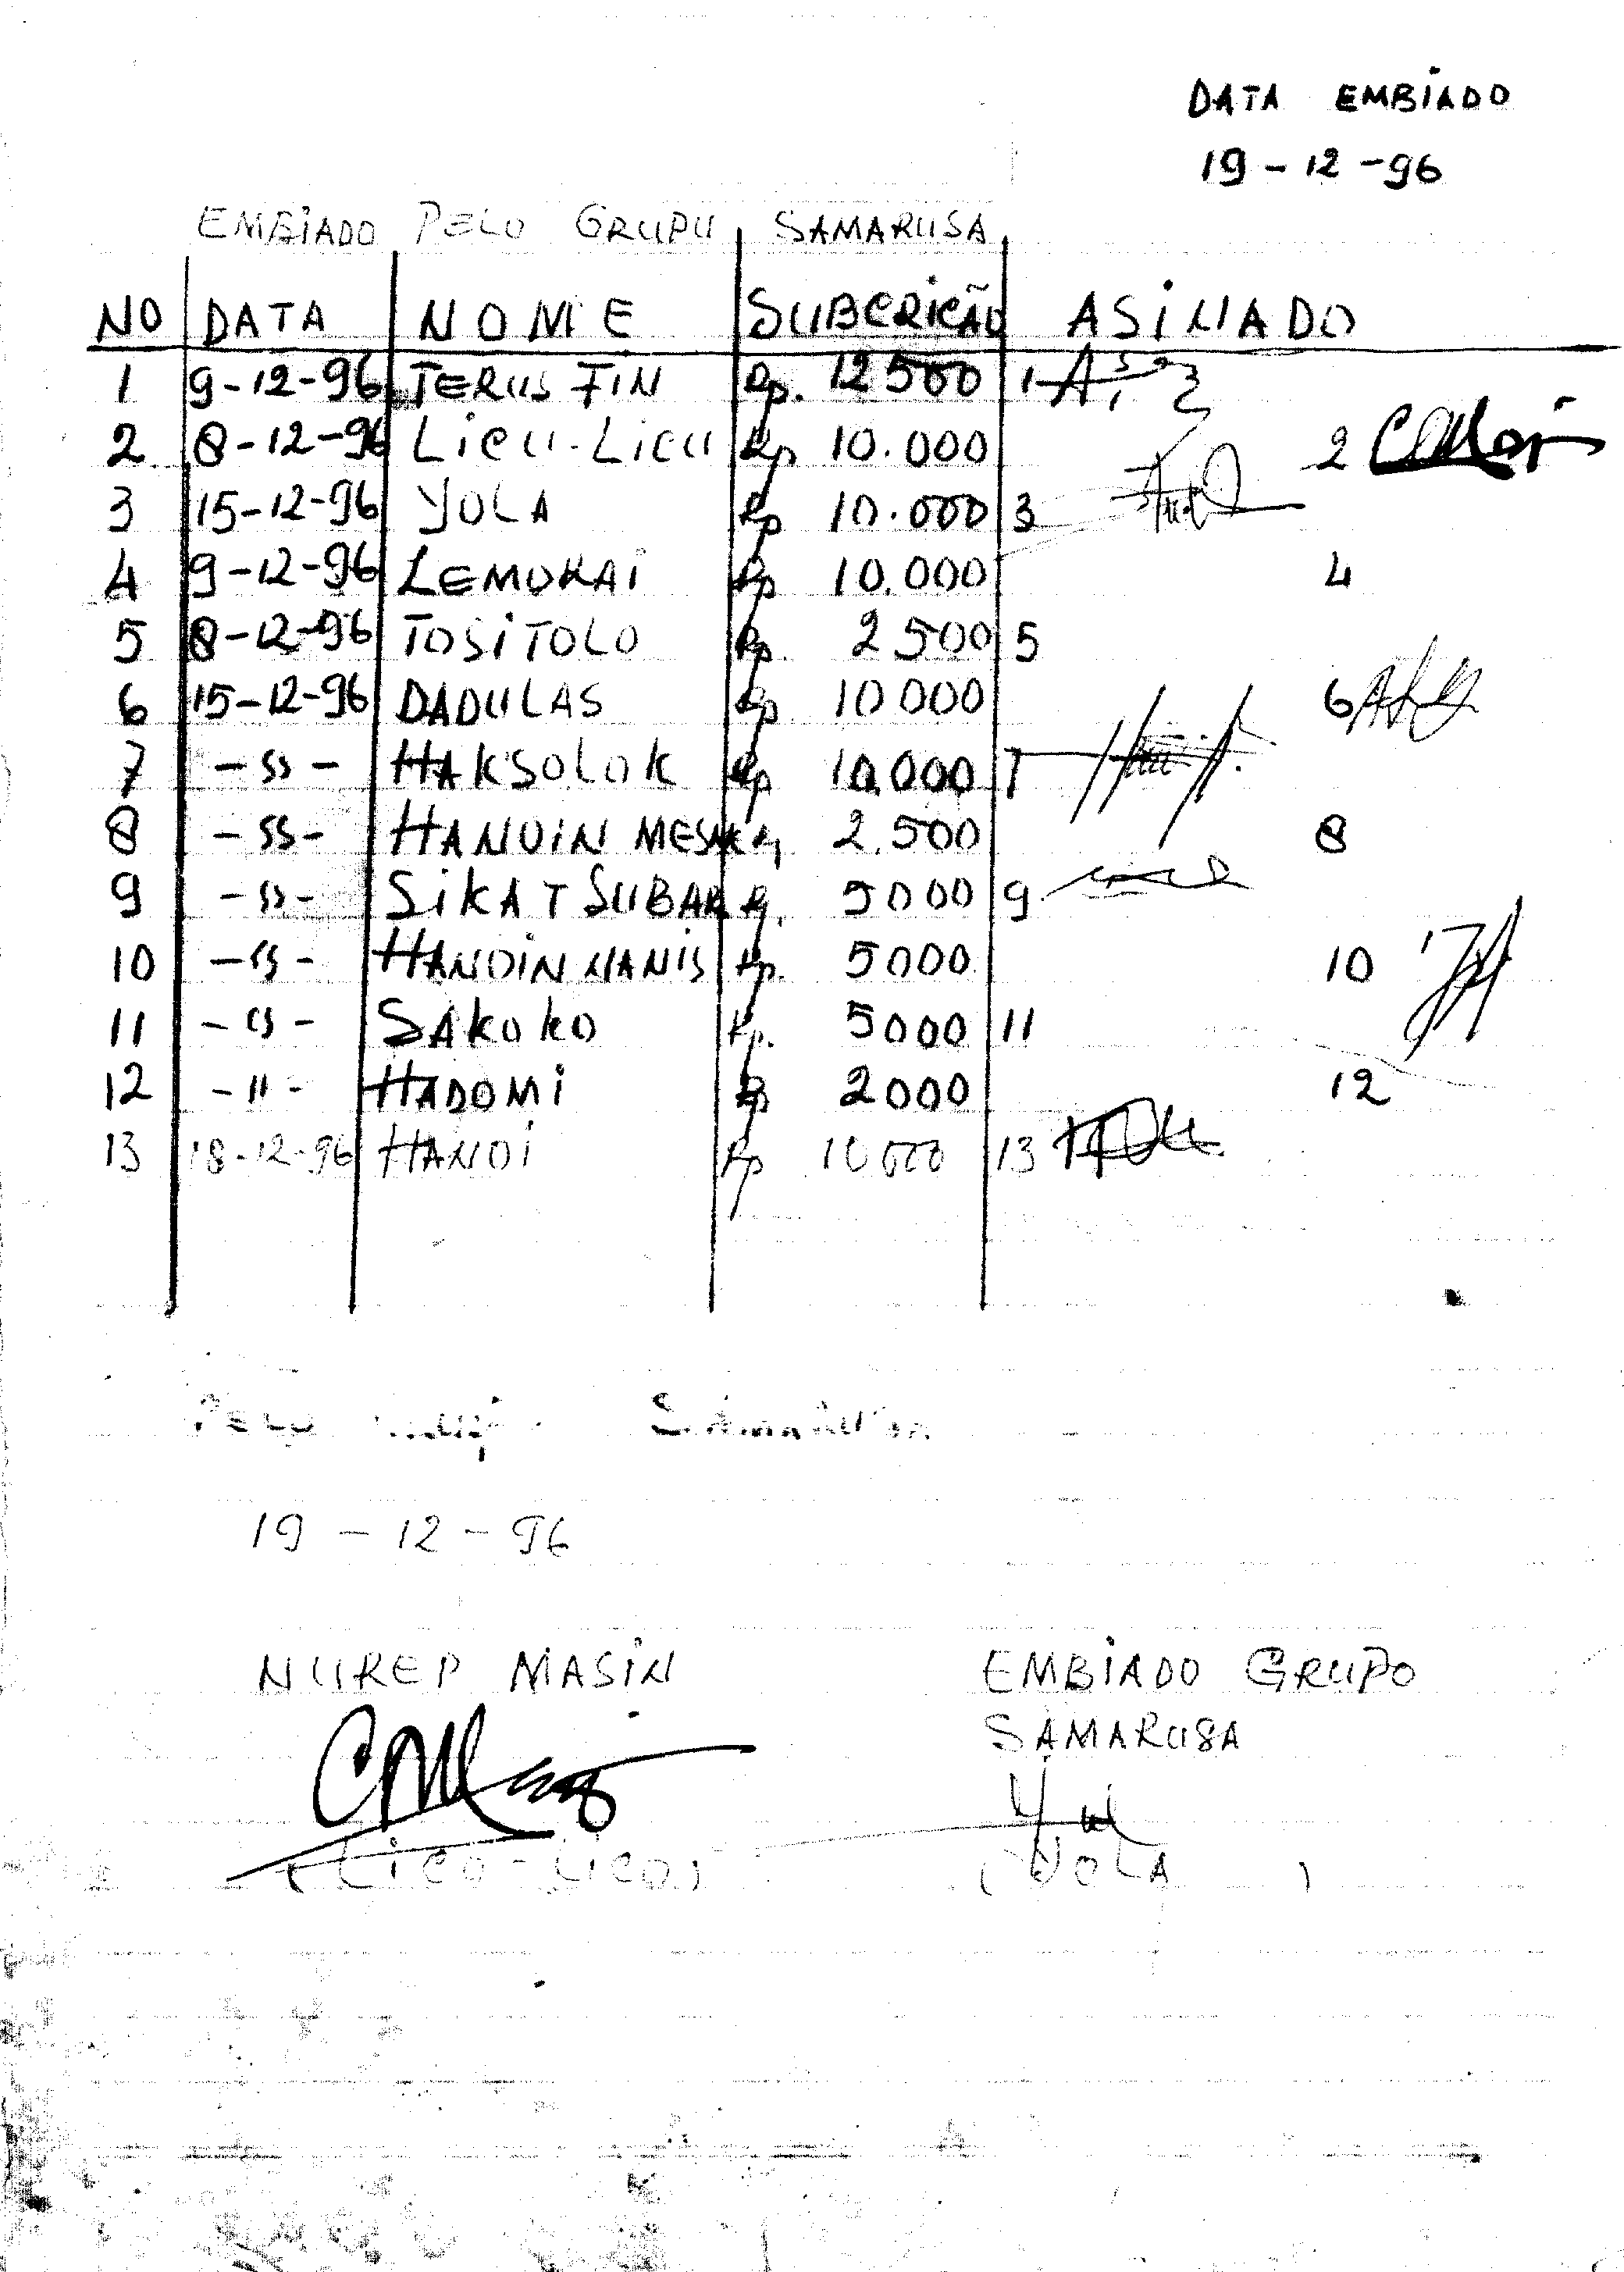 DATA EMBIADO
19-12-96
EMBIADO PELO GRUPU SAMARUSA
NO DATA NOME SUBCRICÃO ASINADO
1 9-12-96 TERUS FIN Rp. 12500 1
2 8-12-96 LICU-LICU Rp 10.000 2
3 15-12-96 YOLA Rp 10.000 3
4 9-12-96 LEMORAI Rp 10.000 4
5 8-12-96 TOSITOLO Rp. 2500 5
6 15-12-96 DADULAS Rp 10000 6
7 -ss- HAKSOLOK Rp 10.000 7
8 -ss- HANOIN MESAK Rp. 2.500 8
9 -ss- SIKAT SUBAR Rp. 5000 9
10 -ss- HANOIN NANIS Rp. 5000 10
11 -ss- SAKOKO Rp. 5000 11
12 -11- HADOMI Rp 2000 12
13 18-12-96 HANOI Rp 10000 13
PELO SAMARUSA
19-12-96
NUREP MASIN EMBIADO GRUPO
SAMARUSA
(LICO-LICO) (YOLA )